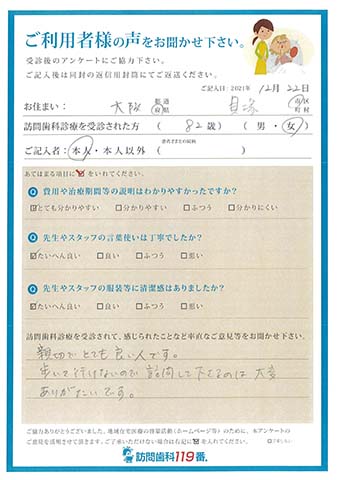 ご利用者様の声をお聞かせ下さい。
受診後のアンケートにご協力下さい。
ご記入後は同封の返信用封筒にてご返送ください。
ご記入日:2021年 12月 22日
お住まい: 大阪 都道府県 貝塚 市区町村
訪問歯科診療を受診された方 ( 82歳) (男・女)
ご記入者:本人・本人以外 ( )
あてはまる項目に☑をいれてください。
Q 費用や治療期間等の説明はわかりやすかったですか?
☑とても分かりやすい □分かりやすい □ふつう □分かりにくい
Q 先生やスタッフの言葉使いは丁寧でしたか?
☑たいへん良い □良い □ふつう □悪い
Q 先生やスタッフの服装等に清潔感はありましたか?
☑たいへん良い □良い □ふつう □悪い
訪問歯科診療を受診されて、感じられたことなど率直なご意見等をお聞かせ下さい。
親切でとても良い人です。
歩いて行けないので訪問して下さるのは大変
ありがたいです。
ご協力ありがとうございました。地域在宅医療の啓蒙活動(ホームページ等)のために、本アンケートの
ご意見を活用させて頂きます。ご了承いただけない場合は右記に☑を入れてください。 □了承しない
訪問歯科119番。